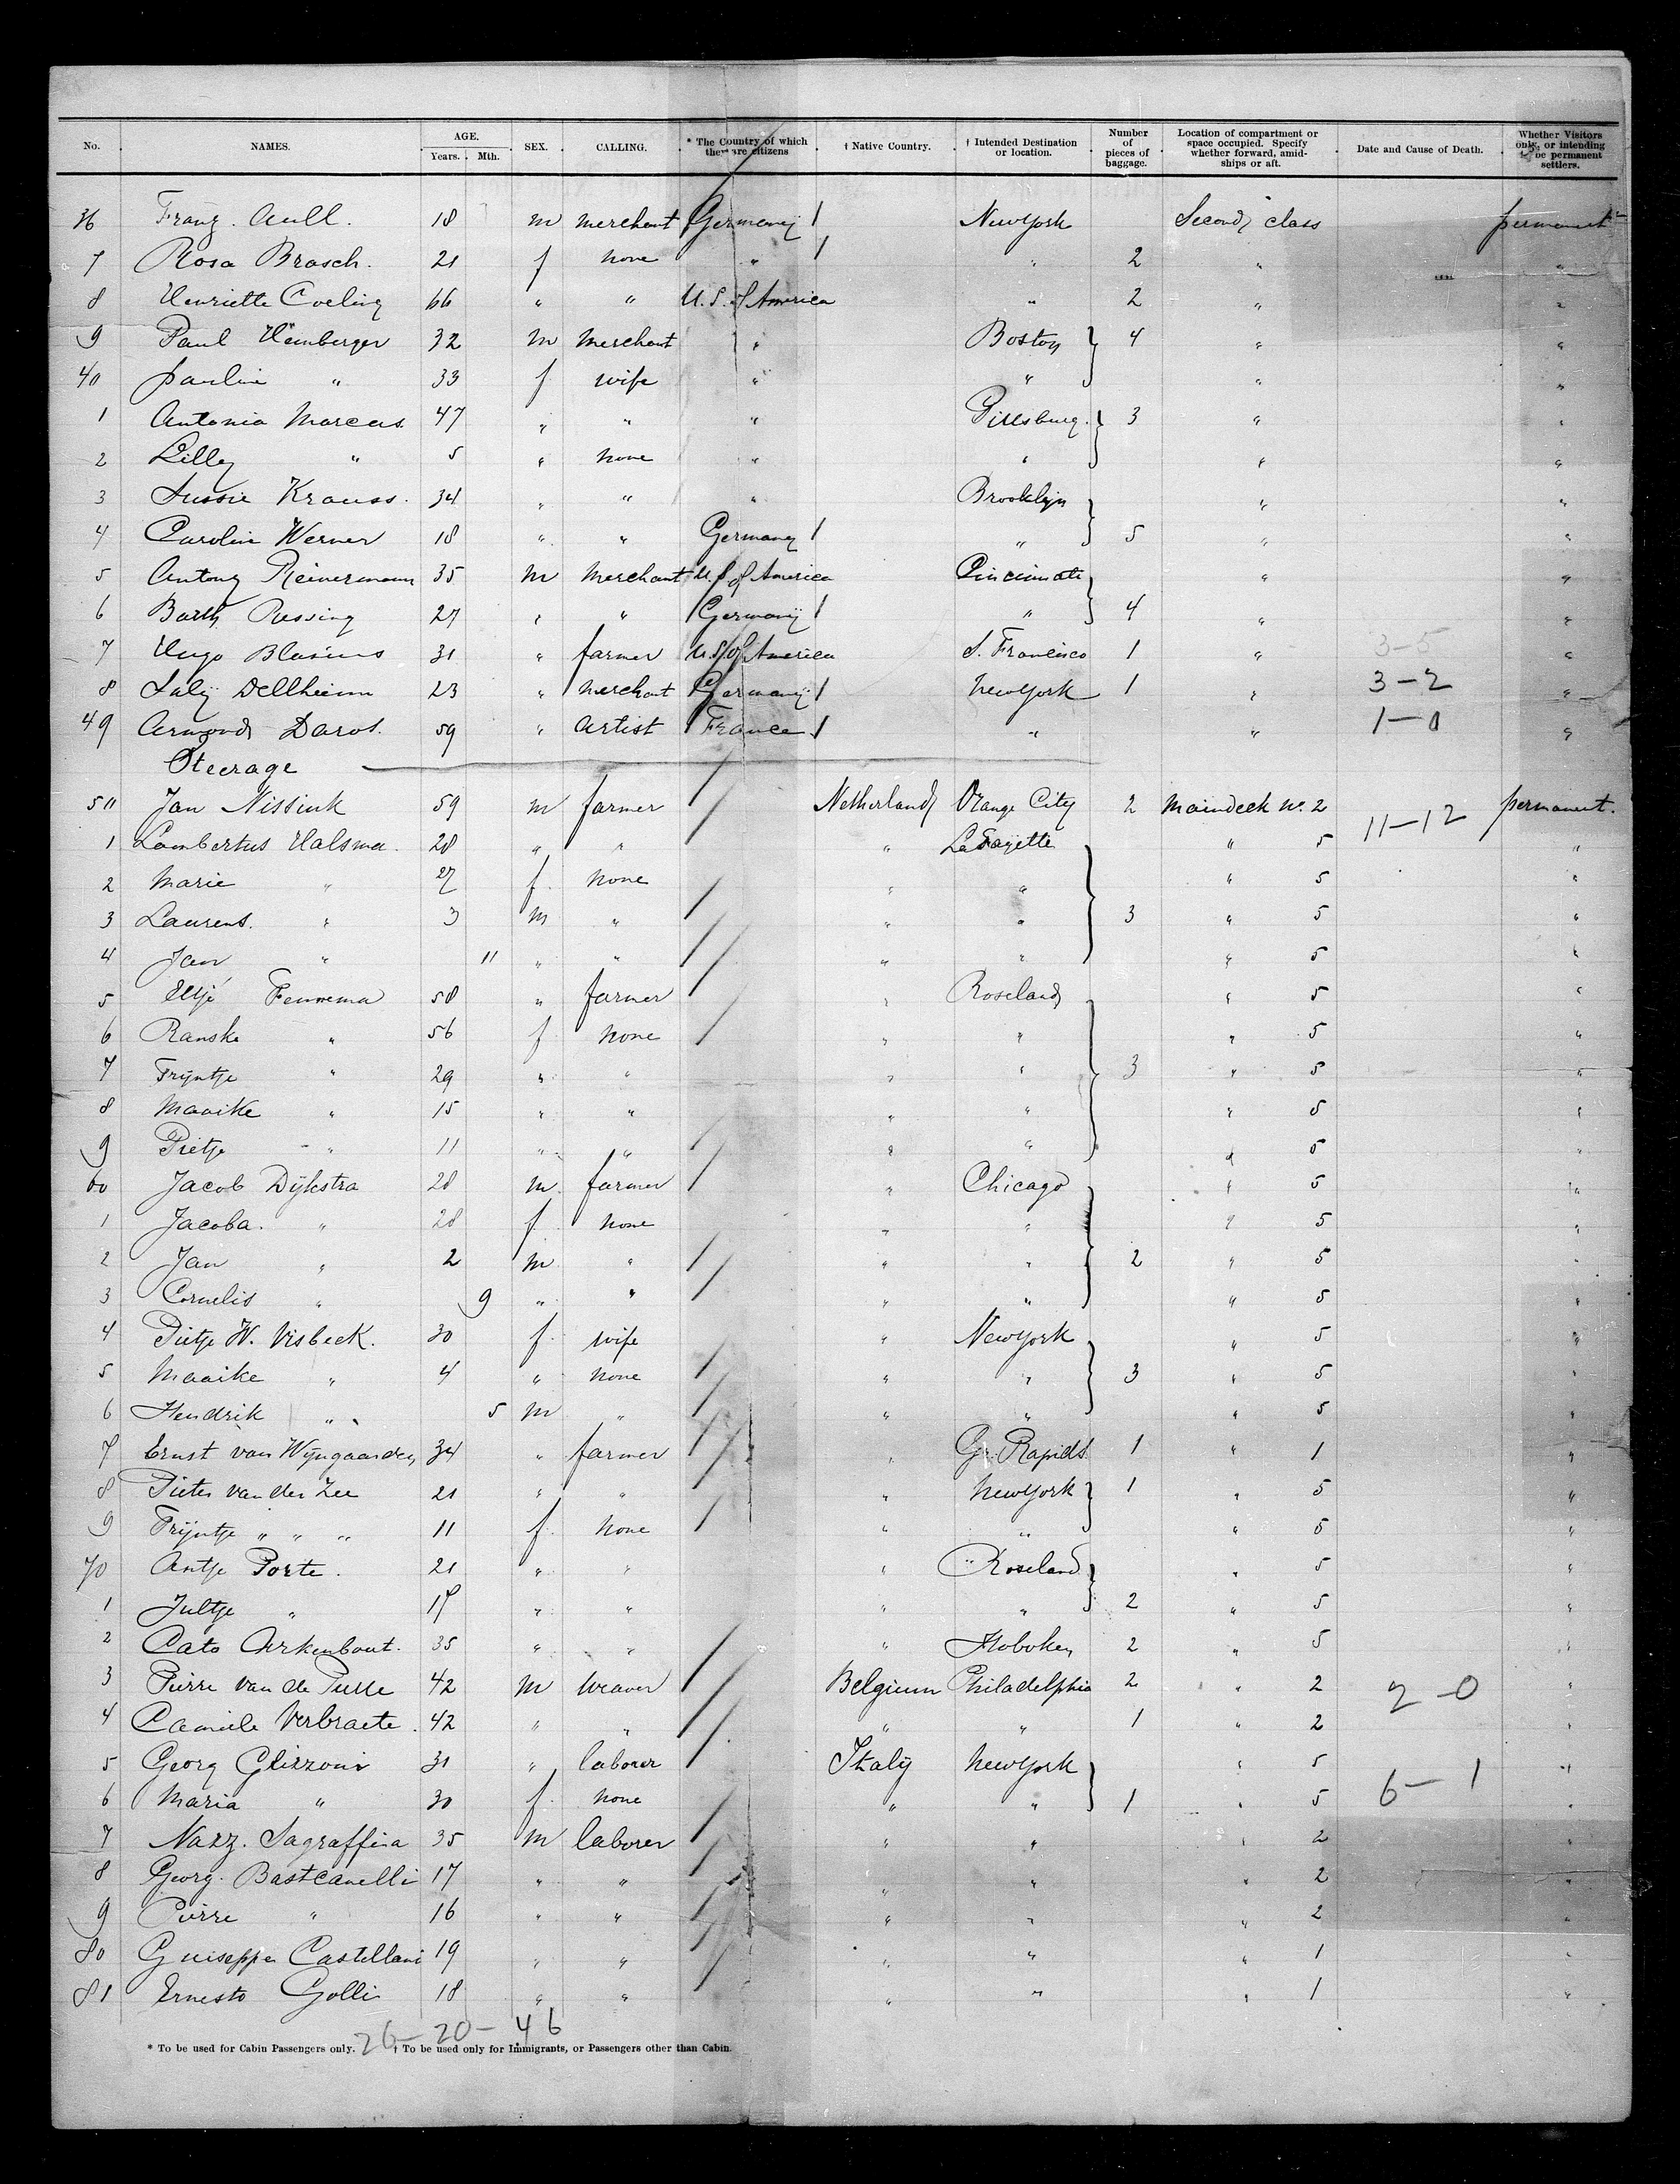 No. NAMES. AGE. Years. Mth. SEX. CALLING. * The Country of which they are citizens † Native Country. † Intended Destination or location. Number of pieces of baggage. Location of compartment or space occupied. Specify whether forward, amidships or aft. Date and Cause of Death. Whether Visitors only, or intending to be permanent settlers.
36 Franz. Aull. 18 m merchant Germany / New York Second class permanent
7 Rosa Brasch. 21 f none " / " 2 " "
8 Henriette 66 " " U.S. of America " 2 " "
9 Paul Heimberger 32 m merchant " Boston } 4 " "
40 Paulin " 33 f wife " " " "
1 Antonia Marcus. 47 " " " } 3 " "
2 Lilly " 5 " none " " " "
3 Sussie Krauss. 34 " " " Brooklyn " "
4 Caroline Werner 18 " " Germany / " } 5 " "
5 Antony Reinermann 35 m merchant U.S. of America Cincinnati " "
6 Barth. Ressing 27 " " Germany / " } 4 " "
7 Hugo Blasius 31 " farmer U.S. of America S. Francisco 1 " 3-5 "
8 Saly Dellheim 23 " merchant Germany / New York 1 " 3-2 "
49 Armond Darot. 59 " artist France / " " 1-0 "
Steerage
50 Jan Nissink 59 m farmer Netherland Orange City 2 Maindeck No. 2 11-12 permanent.
1 Lambertus Halsma. 28 " " " La Fayette " 5 "
2 Marie " 27 f. none " " " 5 "
3 Laurens. " 3 m " " " } 3 " 5 "
4 Jan " 11 " " " " " 5 "
5 Fennema 58 " farmer " Roseland " 5 "
6 Ranske " 56 f none " " " 5 "
7 Trijntje " 29 " " " " } 3 " 5 "
8 Maaike " 15 " " " " " 5 "
9 Pietje " 11 " " " " " 5 "
60 Jacob Dijkstra 28 m. farmer " Chicago " 5 "
1 Jacoba. " 28 f. none " " " 5 "
2 Jan " 2 m " " " } 2 " 5 "
3 Cornelis " 9 " " " " " 5 "
4 Pietje W. Visbeek. 30 f. wife " New York " 5 "
5 Maaike " 4 " none " " } 3 " 5 "
6 Hendrik " 5 m " " " " 5 "
7 Ernst van Wijngaarden 34 " farmer " Gr. Rapids 1 " 1 "
8 Pieter van der Zee 21 " " " New York } 1 " 5 "
9 Trijntje " " " 11 f. none " " " 5 "
70 Antje Porte. 21 " " " Roseland " 5 "
1 Jultje " 19 " " " " } 2 " 5 "
2 Cato Arkenbout. 35 " " " Hoboken 2 " 5 "
3 Pierre van de Putte 42 m weaver Belgium Philadelphia 2 " 2 2-0 "
4 Camiele Verbraete. 42 " " " " 1 " 2 "
5 Georg Glizzoni 31 " laborer Italy New York " 5 "
6 Maria " 30 f. none " " } 1 " 5 6-1 "
7 Nazz. Sagraffina 35 m laborer " " " 2 "
8 Georg. Bastcanelli 17 " " " " " 2 "
9 Pierre " 16 " " " " " 2 "
80 Guiseppe Castellani 19 " " " " " 1 "
81 Ernesto Golli 18 " " " " " 1 "
26-20-46
* To be used for Cabin Passengers only. † To be used only for Immigrants, or Passengers other than Cabin.